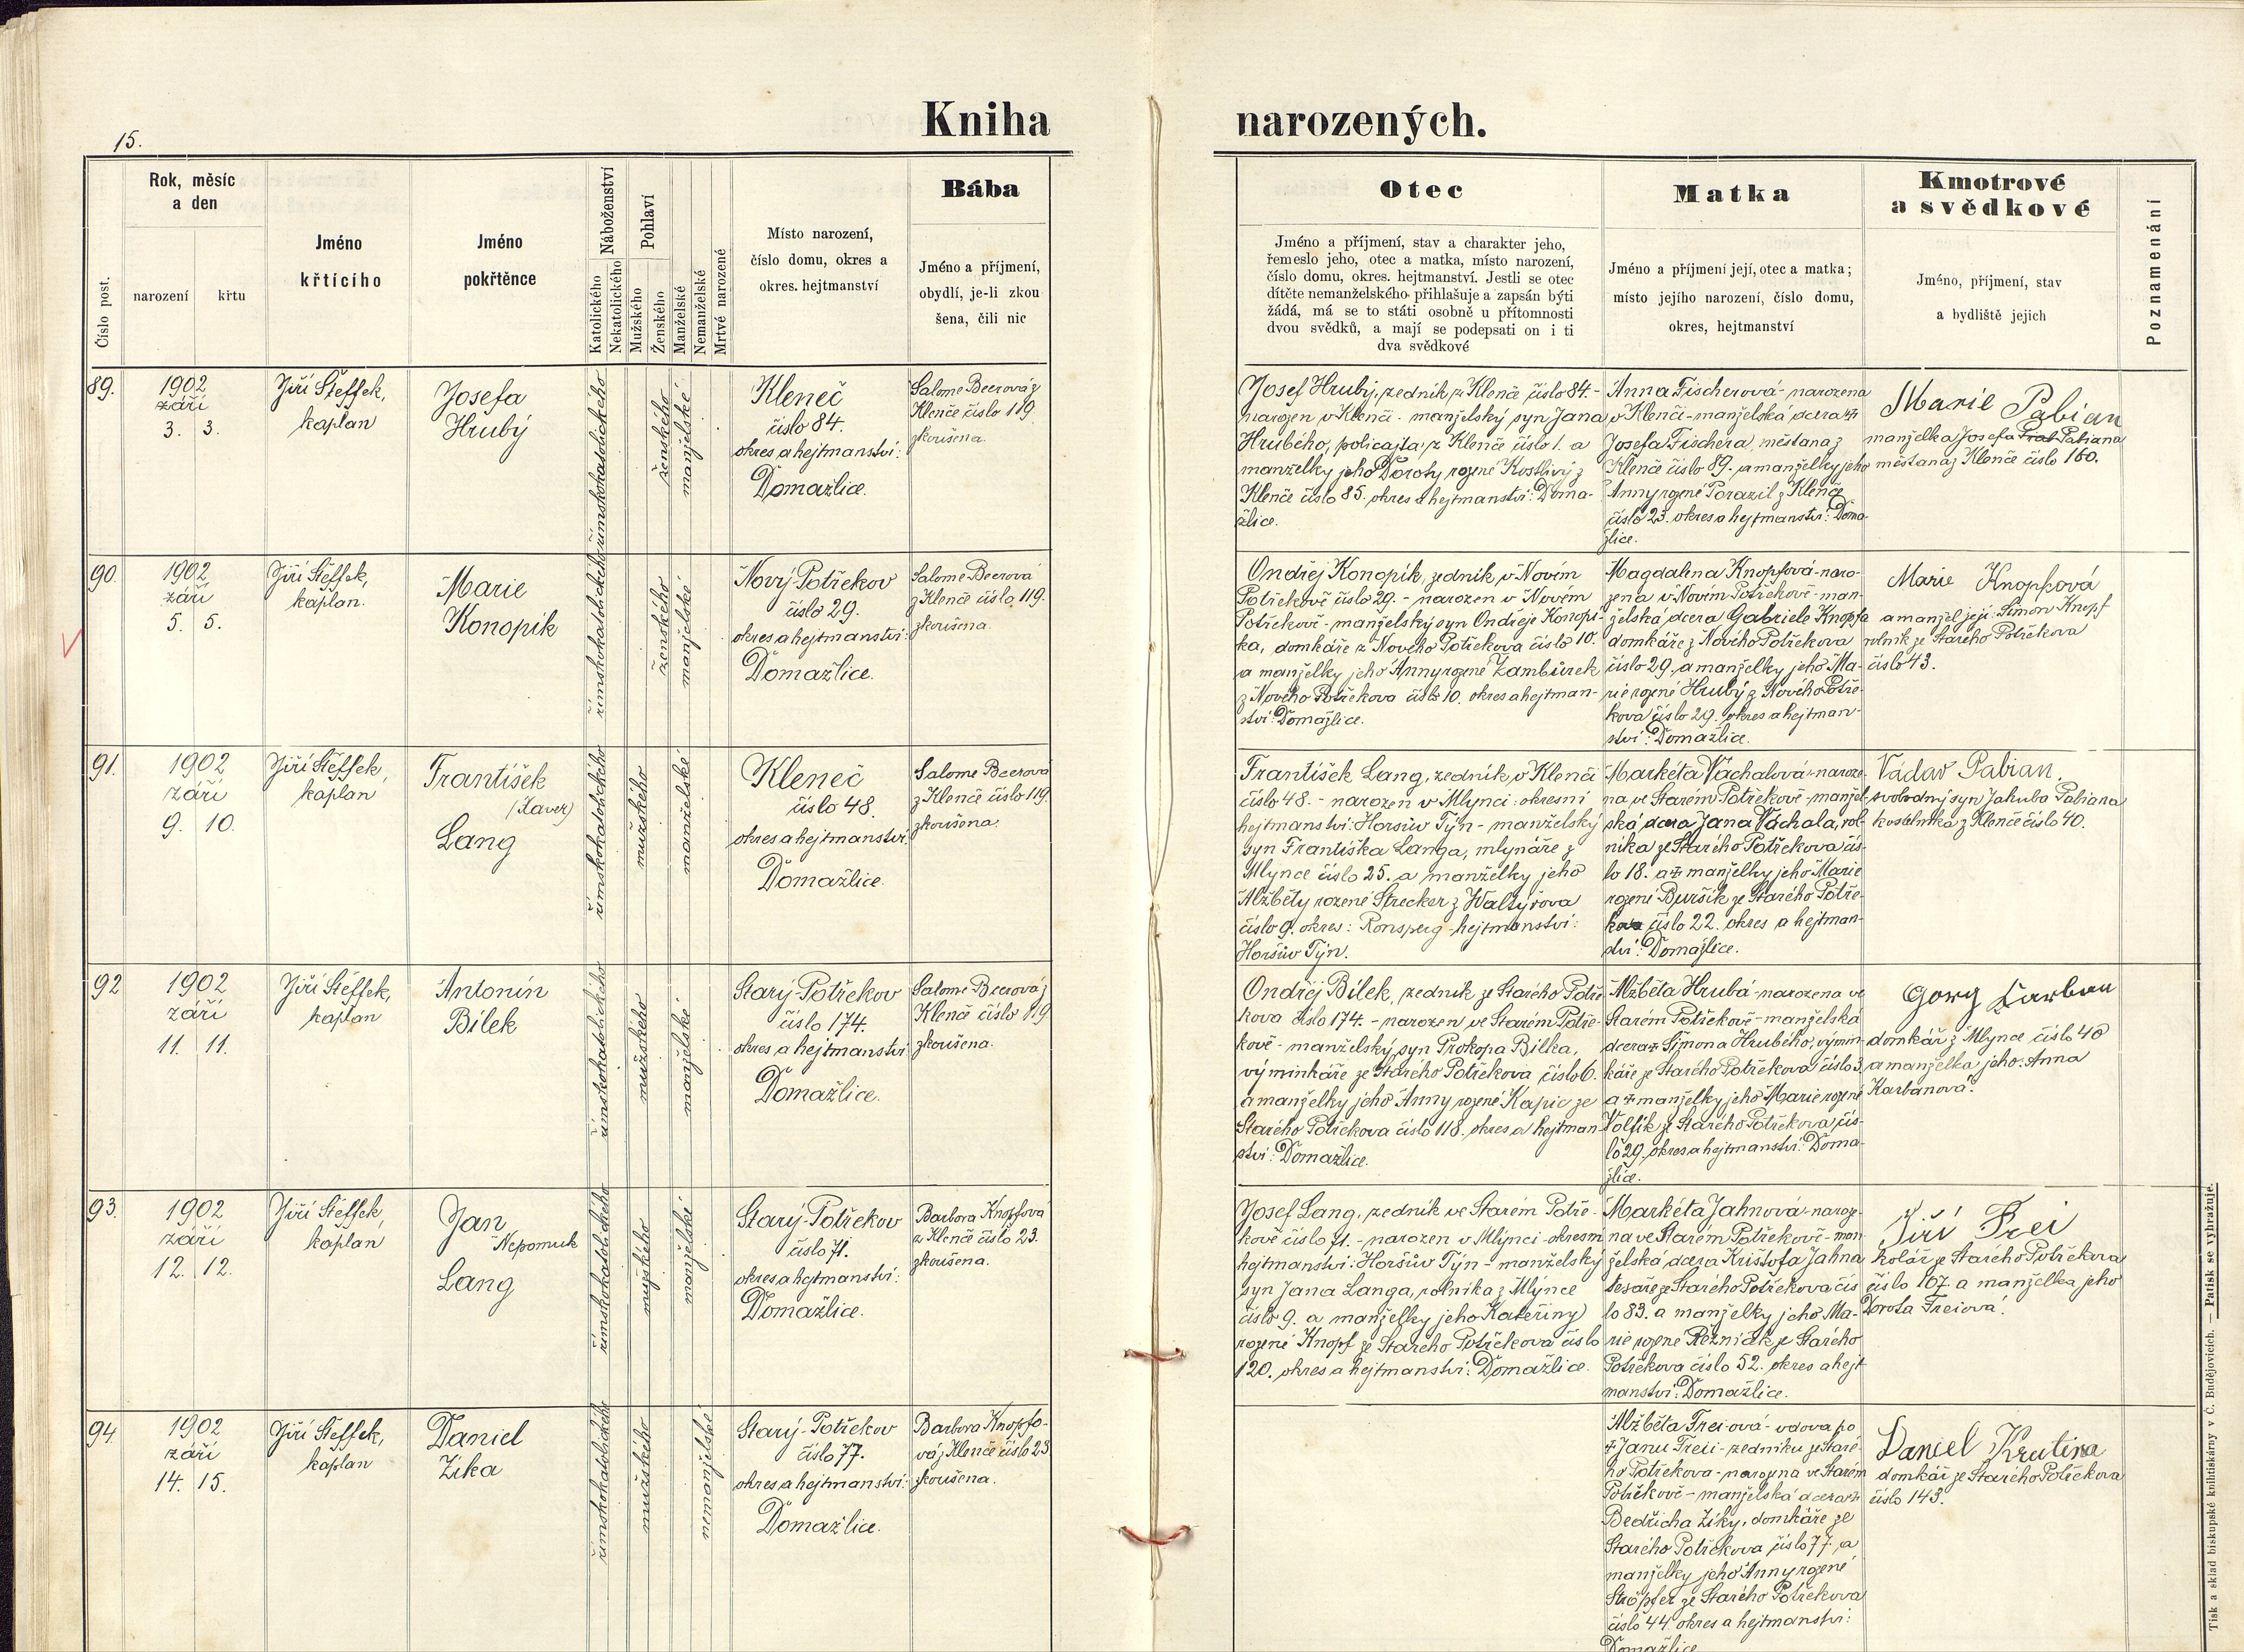 15.
Kniha
narozených.
Číslo post.
Rok, měsíc
a den
narození
křtu
Jméno
křtícího
Jméno
pokřtěnce
Náboženství
Katolického
Nekatolického
Pohlaví
Mužského
Ženského
Manželské
Nemanželské
Mrtvé narozené
Místo narození,
číslo domu, okres a
okres. hejtmanství
Bába
Jméno a příjmení,
obydlí, je-li zkou
šena, čili nic
Otec
Jméno a příjmení, stav a charakter jeho,
řemeslo jeho, otec a matka, místo narození,
číslo domu, okres. hejtmanství. Jestli se otec
dítěte nemanželského přihlašuje a zapsán býti
žádá, má se to státi osobně u přítomnosti
dvou svědků, a mají se podepsati on i ti
dva svědkové
Matka
Jméno a příjmení její, otec a matka;
místo jejího narození, číslo domu,
okres, hejtmanství
Kmotrové
a svědkové
Jméno, příjmení, stav
a bydliště jejich
Poznamenání
89.
1902
září
3. 3.
Jiří Šteffek,
kaplan
Josefa
Hrubý
římskokatolického
ženského
manželské
Kleneč
číslo 84.
okres a hejtmanství:
Domažlice.
Salome Beerová z
Klenče číslo 119.
zkoušena.
Josef Hrubý, zedník z Klenče číslo 84.-
narozen v Klenči - manželský syn Jana
Hrubého, policajta z Klenče číslo 1. a
manželky jeho Doroty rozené Kostlivý z
Klenče číslo 85. okres a hejtmanství: Doma-
žlice.
Anna Fischerová - narozena
v Klenči - manželská dcera †
Josefa Fischera, měšťana z
Klenče číslo 89. a manželky jeho
Anny rozené Porazil z Klenče
číslo 23. okres a hejtmanství: Doma-
žlice.
Marie Pabian
manželka Josefa Pabiana
měšťana z Klenče číslo 160.
90.
1902
září
5. 5.
Jiří Šteffek,
kaplan.
Marie
Konopík
římskokatolického
ženského
manželské
Nový-Potřekov
číslo 29.
okres a hejtmanství:
Domažlice.
Salome Beerová
z Klenče číslo 119.
zkoušena.
Ondřej Konopík, zedník v Novém
Potřekově číslo 29. - narozen v Novém
Potřekově - manželský syn Ondřeje Konopí-
ka, domkáře z Nového Potřekova číslo 10.
a manželky jeho Anny rozené Žambůrek
z Nového Potřekova číslo 10. okres a hejtman-
ství: Domažlice.
Magdalena Knopfová - naro-
zena v Novém Potřekově - man-
želská dcera Gabriele Knopfa
domkáře z Nového Potřekova
číslo 29. a manželky jeho Ma-
rie rozené Hrubý z Nového Potře-
kova číslo 29. okres a hejtman-
ství: Domažlice.
Marie Knopfová
a manžel její Šimon Knopf
rolník ze Starého Potřekova
číslo 43.
91.
1902
září
9. 10.
Jiří Šteffek,
kaplan
František
(Xaver)
Lang
římskokatolického
mužského
manželské
Kleneč
číslo 48.
okres a hejtmanství:
Domažlice.
Salome Beerová
z Klenče číslo 119.
zkoušena.
František Lang, zedník v Klenči
číslo 48. - narozen v Mlýnci: okresní
hejtmanství: Horšův Týn - manželský
syn Františka Langa, mlynáře z
Mlýnce číslo 25. a manželky jeho
Alžběty rozené Strecker z Waltýřova
číslo 9. okres: Ronsperg - hejtmanství:
Horšův Týn.
Markéta Váchalová - naroze-
na ve Starém Potřekově - manžel-
ská dcera Jana Váchala, rol-
níka ze Starého Potřekova čís-
lo 18. a † manželky jeho Marie
rozené Buršík ze Starého Potře-
kova číslo 22. okres a hejtman-
ství: Domažlice.
Václav Pabian,
svobodný syn Jakuba Pabiana
kostelníka z Klenče číslo 40.
92
1902
září
11. 11.
Jiří Šteffek,
kaplan
Antonín
Bílek
římskokatolického
mužského
manželské
Starý-Potřekov
číslo 174.
okres a hejtmanství:
Domažlice.
Salome Beerová z
Klenče číslo 119
zkoušena.
Ondřej Bílek, zedník ze Starého Potře-
kova číslo 174. - narozen ve Starém Potře-
kově - manželský syn Prokopa Bílka,
výminkáře ze Starého Potřekova číslo 6.
a manželky jeho Anny rozené Kapic ze
Starého Potřekova číslo 118. okres a hejtman-
ství: Domažlice.
Alžběta Hrubá - narozena ve
Starém Potřekově - manželská
dcera † Šimona Hrubého, výmin-
káře ze Starého Potřekova číslo 3.
a † manželky jeho Marie rozené
Volfík ze Starého Potřekova čís-
lo 29. okres a hejtmanství: Doma-
žlice.
Gorg Karban
domkář z Mlýnce číslo 40
a manželka jeho: Anna
Karbanová.
93.
1902
září
12. 12.
Jiří Šteffek,
kaplan
Jan
Nepomuk
Lang
římskokatolického
mužského
manželské
Starý-Potřekov
číslo 71.
okres a hejtmanství:
Domažlice.
Barbora Knopfová
z Klenče číslo 23.
zkoušena.
Josef Lang, zedník ve Starém Potře-
kově číslo 71. - narozen v Mlýnci - okresní
hejtmanství: Horšův Týn - manželský
syn Jana Langa, rolníka z Mlýnce
číslo 9. a manželky jeho Kateřiny
rozené Knopf ze Starého Potřekova číslo
120. okres a hejtmanství: Domažlice.
Markéta Jahnová - naroze-
na ve Starém Potřekově - man-
želská dcera Krištofa Jahna
tesaře ze Starého Potřekova čís
lo 83. a manželky jeho Ma-
rie rozené Řezníček ze Starého
Potřekova číslo 52. okres a hejt-
manství: Domažlice.
Jiří Frei
kolář ze Starého Potřekova
číslo 107. a manželka jeho
Dorota Freiová.
94.
1902
září
14. 15.
Jiří Šteffek,
kaplan
Daniel
Žika
římskokatolického
mužského
nemanželské
Starý-Potřekov
číslo 77.
okres a hejtmanství:
Domažlice.
Barbora Knopfo-
vá z Klenče číslo 23
zkoušena.
Alžběta Frei-ová - vdova po
† Janu Freii - zedníku ze Staré-
ho Potřekova - narozena ve Starém
Potřekově - manželská dcera †
Bedřicha Žiky, domkáře ze
Starého Potřekova číslo 77. a
manželky jeho Anny rozené
Ströpfer ze Starého Potřekova
číslo 44 okres a hejtmanství:
Domažlice
Daniel Krutina
domkář ze Starého Potřekova
číslo 143.
Tisk a sklad biskupské knihtiskárny v Č. Budějovicích. — Patisk se vyhražuje.